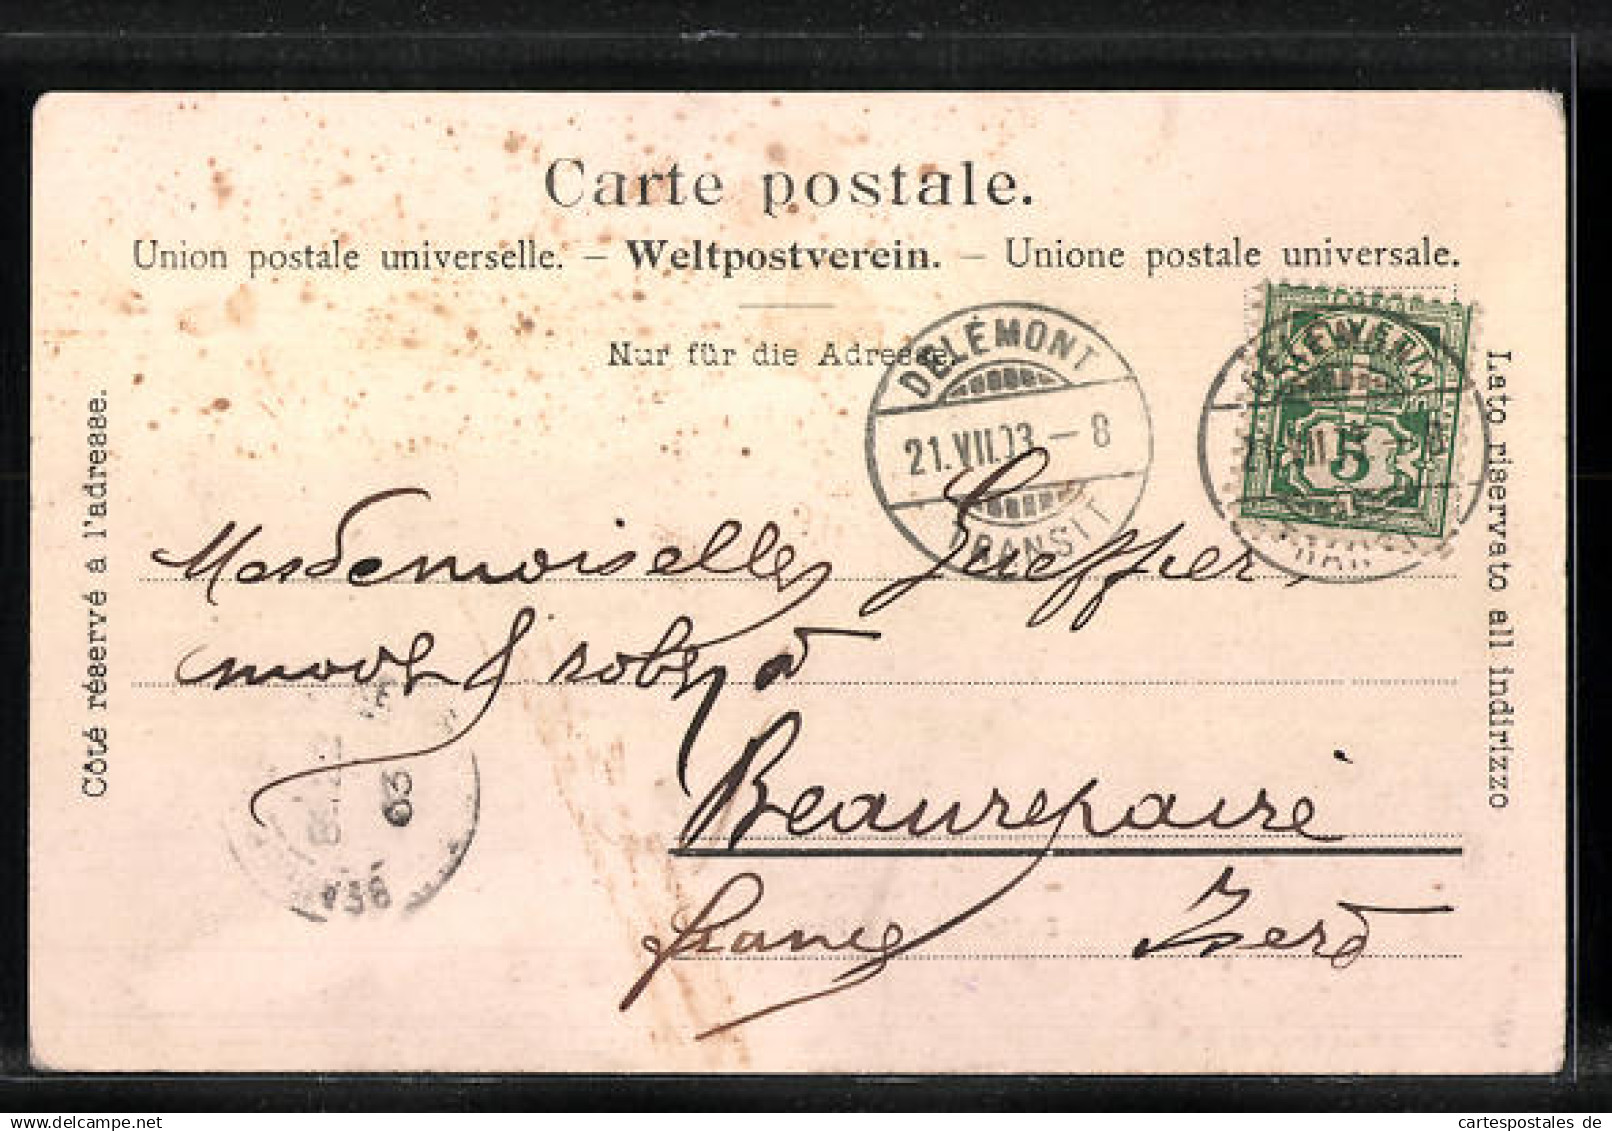 Carte postale.
Union postale universelle. – Weltpostverein. – Unione postale universale.
Nur für die Adresse.
Côté réservé à l'adresse.
Lato riservato all indirizzo
DELÉMONT
21.VII.03 – 8
TRANSIT
5
Mesdemoiselles
modes & robes à
Beaurepaire
france Isère
03
38
cartespostales de